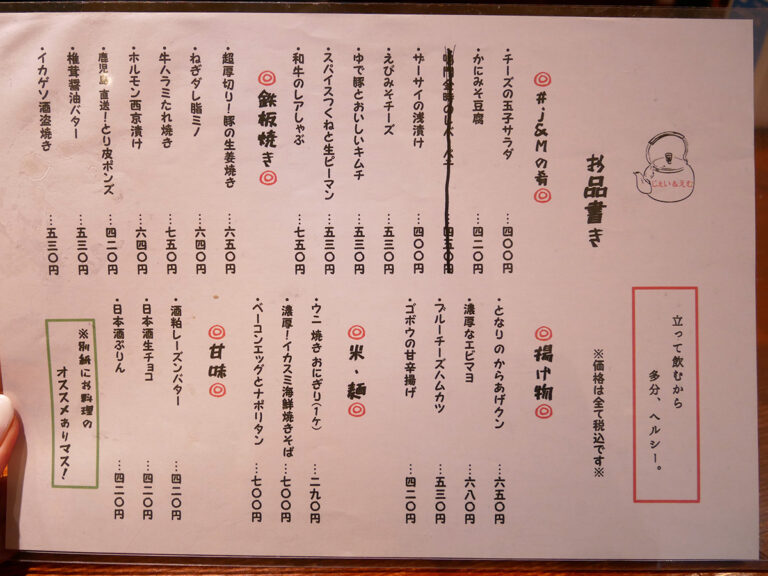 じぇい&えむ
お品書き
立って飲むから
多分、ヘルシー。
※価格は全て税込です※
◎#.J&Mの肴◎
・チーズの玉子サラダ …四〇〇円
・かにみそ豆腐 …四二〇円
…四五〇円
・ザーサイの浅漬け …四〇〇円
・えびみそチーズ …五三〇円
・ゆで豚とおいしいキムチ …五三〇円
・スパイスつくねと生ピーマン …五三〇円
・和牛のレアしゃぶ …七五〇円
◎鉄板焼き◎
・超厚切り!豚の生姜焼き …六五〇円
・ねぎダレ脂ミノ …六四〇円
・牛ハラミたれ焼き …七五〇円
・ホルモン西京漬け …六四〇円
・鹿児島直送!とり皮ポンズ …四二〇円
・椎茸醤油バター …五三〇円
・イカゲソ酒盗焼き …五三〇円
◎揚げ物◎
・となりのからあげクン …六五〇円
・濃厚なエビマヨ …六八〇円
・ブルーチーズハムカツ …五三〇円
・ゴボウの甘辛揚げ …四二〇円
◎米・麺◎
・ウニ焼きおにぎり(1ケ) …二九〇円
・濃厚!イカスミ海鮮焼きそば …七〇〇円
・ベーコンエッグとナポリタン …七〇〇円
◎甘味◎
・酒粕レーズンバター …四二〇円
・日本酒生チョコ …四二〇円
・日本酒ぷりん …四二〇円
※別紙にお料理の
オススメありマス!